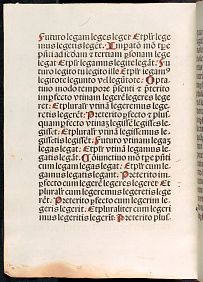 Futuro legam leges leget Etpl̄r lege
mus legetis legēt. Impatō mō tp̄e
pñti ad scd̄am ⁊ tertiam p̄sonam lege
legat Etpl̄r legamus legite legāt. Fu
turo legito tu legito ille Etpl̄r legamꝰ
legitote legunto vel legūtote. Optati
uo modo tempore p̄senti ⁊ p̄terito
imp̄fecto vtinam legerē legeres lege
ret. Etpluraĺr vtinā legeremus lege
retis legerēt. Preterito p̄fecto ⁊ plus
quamp̄fecto vtinā legissem legisses le
gisset. Etpluraĺr vtinā legissemus le
gissetis legissēt. Futuro vtinaꝫ legaꝫ
legas legat. Etpl̄r vtinā legamus le
gatis legāt. Cōiunctiuo mō tp̄e pñti
cum legam legas legat. Etpl̄r cum le
gamus legatis legant. Preterito im
p̄fecto cum legerē legeres legeret Et
pluraĺr cum legeremus legeretis lege
rēt. Preterito p̄fecto cum legerim le
geris legerit. Etpluraliter cum legeri
mus legeritis legerīt. Preterito plus